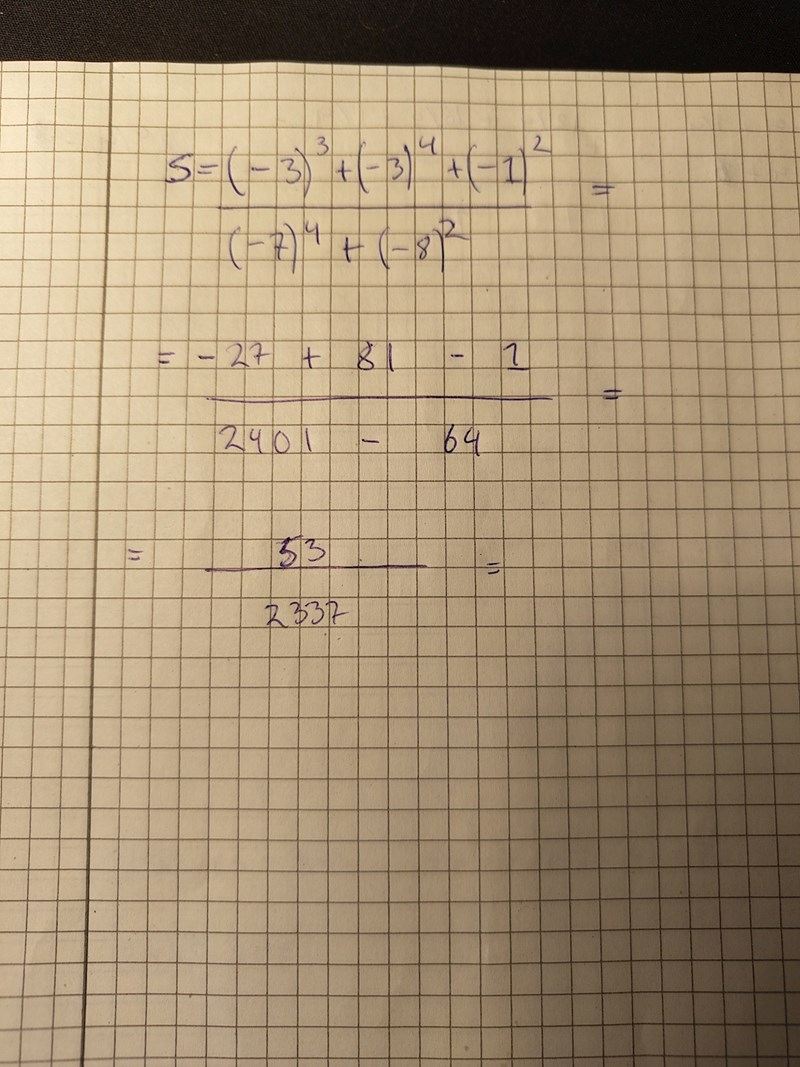 S = (-3)³ + (-3)⁴ + (-1)² =
(-7)⁴ + (-8)²
= -27 + 81 - 1 =
2401 - 64
= 53 =
2337